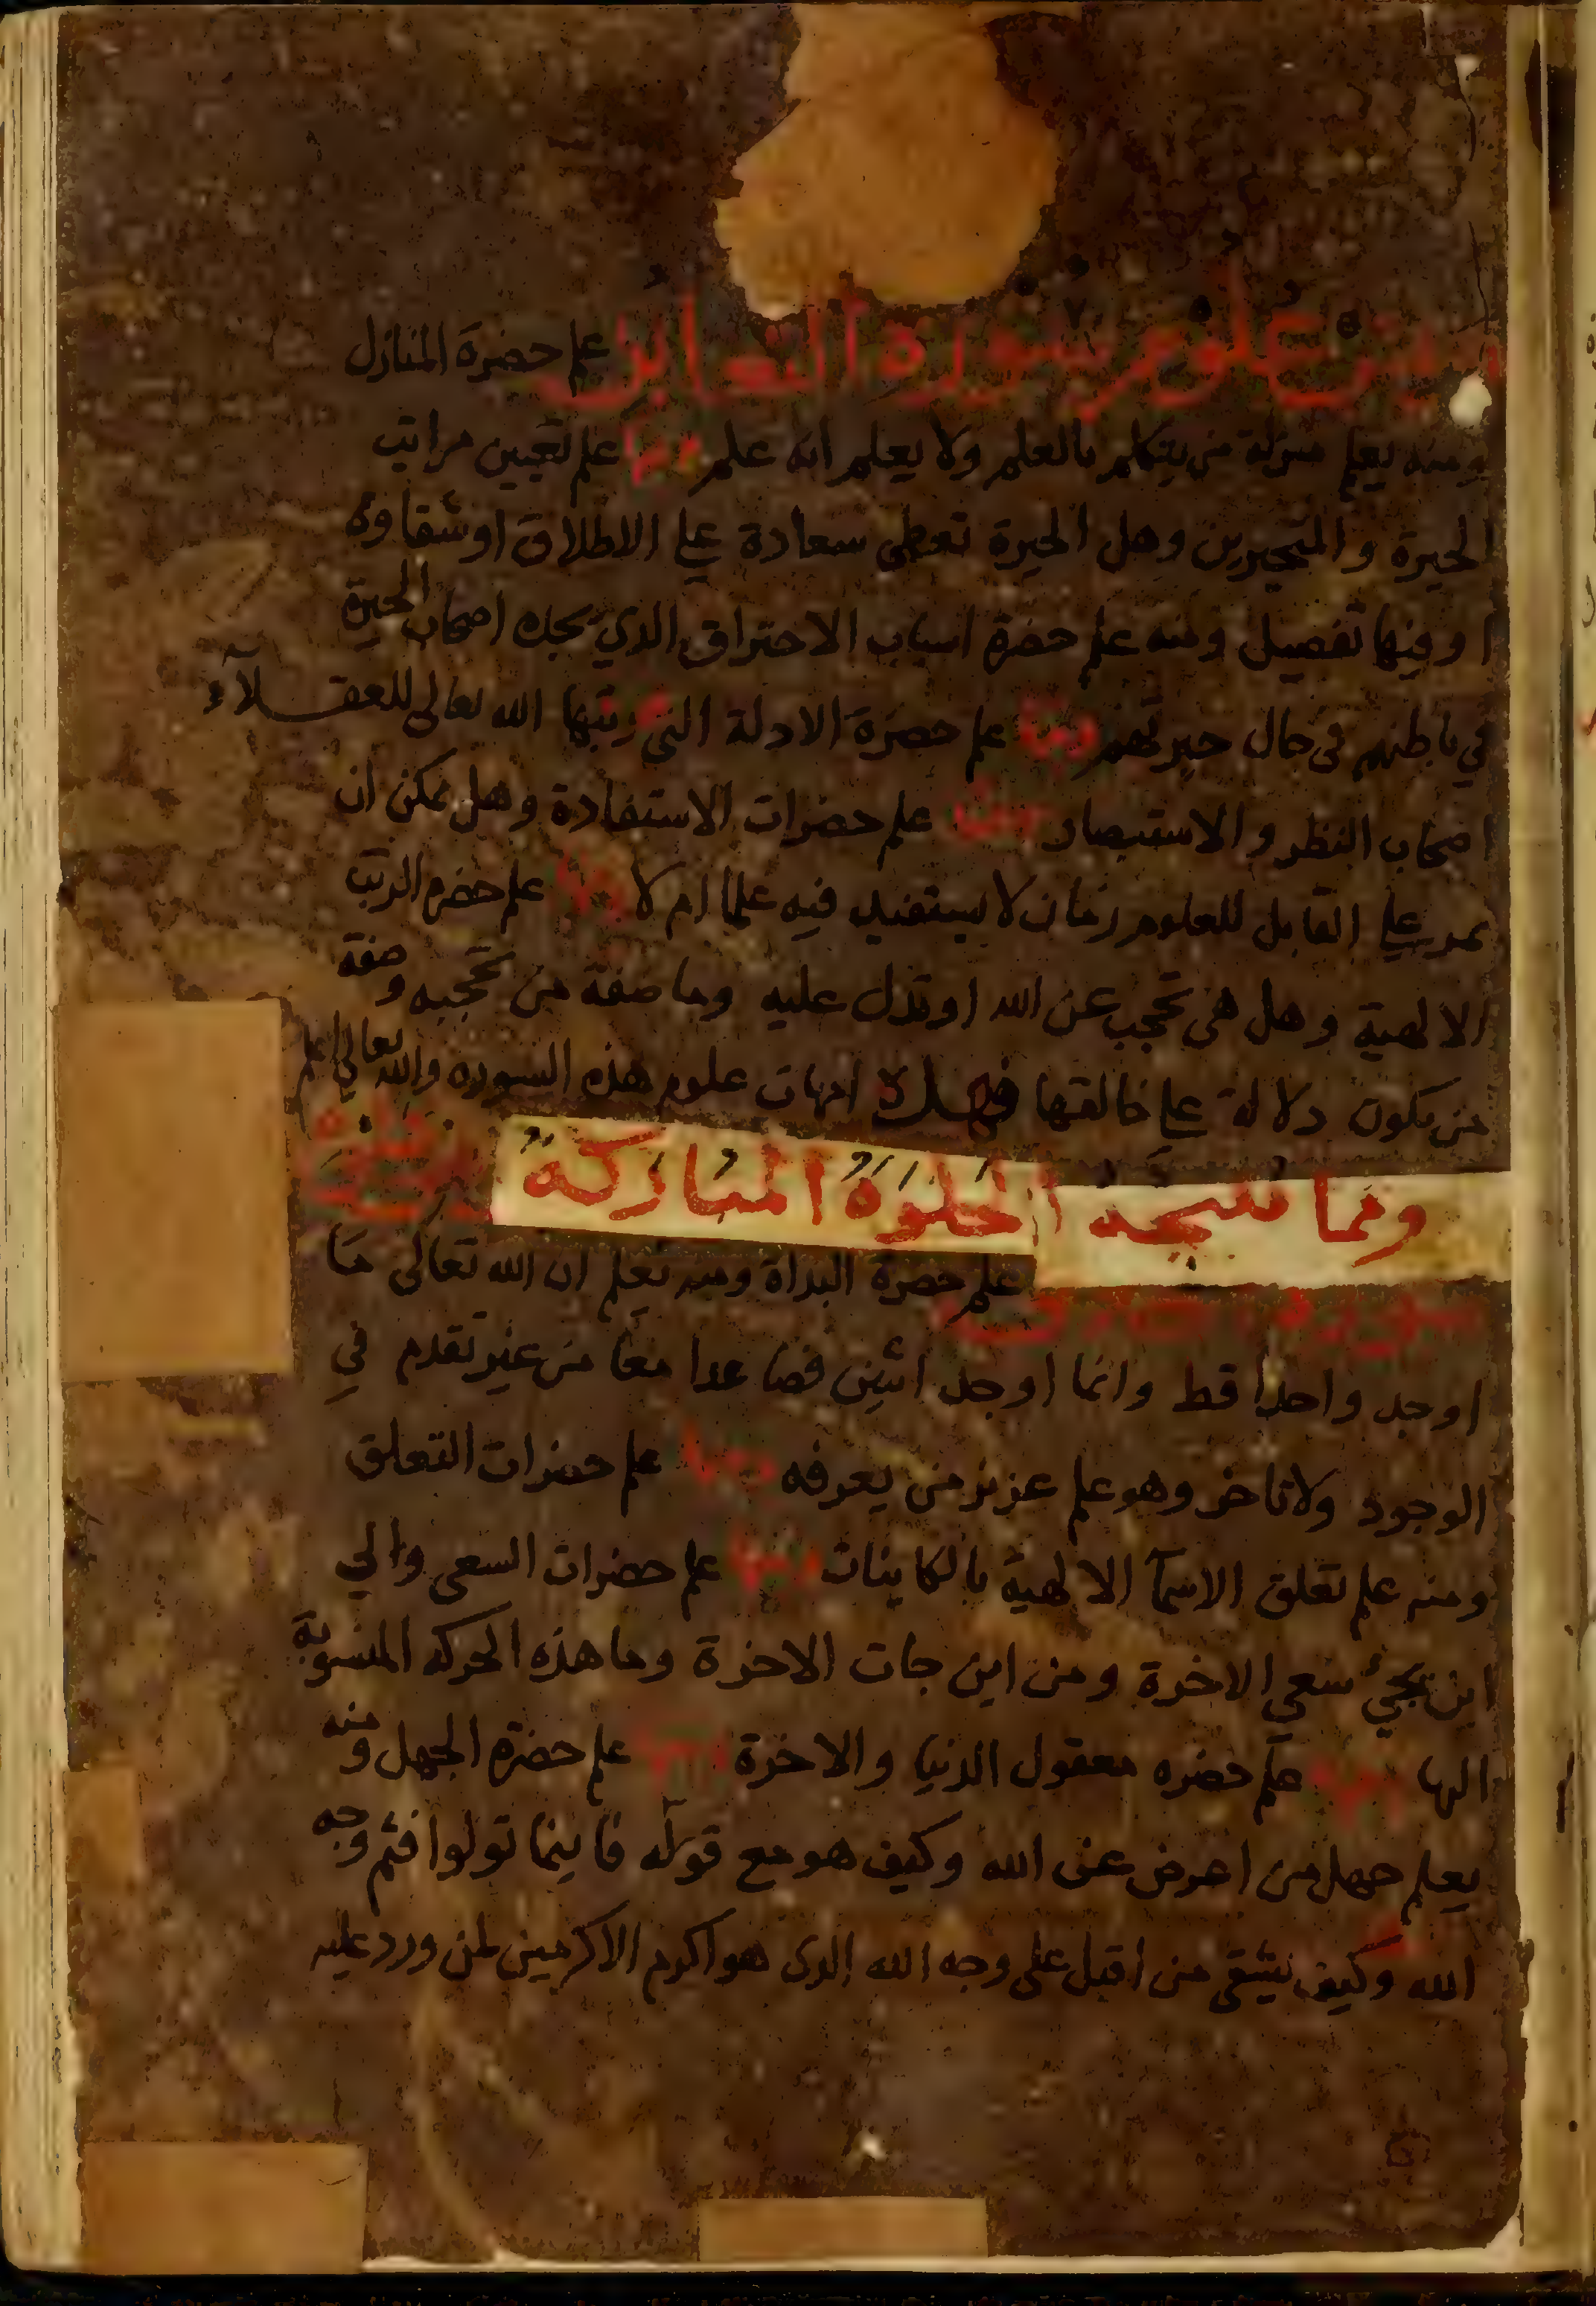 من علوم سورة التغابن علم حضرة المنازل
ومنه يعلم منزلة من يتكلم بالعلم ولا يعلم انه علم ومنها علم تعيين مراتب
الحيرة والمتحيرين وهل الحيرة تعطى سعادة على الاطلاق او شقاوة
او فيها تفصيل ومنه علم حضرة اسباب الاحتراق الذي يجده اصحاب الحيرة
في باطنهم في حال حيرتهم ومنها علم حضرة الادلة التي رتبها الله تعالى للعقلآء
اصحاب النظر والاستبصار ومنها علم حضرات الاستفادة وهل يمكن ان
يمر على القابل للعلوم زمان لا يستفيد فيه علما ام لا ومنها علم حضرة الرتب
الالهية وهل هي تحجب عن الله او تدل عليه وما صفة من تحجبه وصفة
من يكون دلالة على خالقها فهذه امهات علوم هذه السوره والله تعالى اعلم
ومما تنتجه الخلوة المباركة من علوم
سورة علم حضرة البداة ومنه تعلم ان الله تعالى ما
اوجد واحدا قط وانما اوجد اثنين فصاعدا معا من غير تقدم في
الوجود ولا تاخر وهو علم عزيز من يعرفه ومنها علم حضرات التعلق
ومنه علم تعلق الاسمآ الالهية بالكاينات ومنها علم حضرات السعى والي
اين يجيء سعي الاخرة ومن اين جات الاخرة وما هذه الحركه المنسوبة
اليها ومنها علم حضره معقول الدنيا والاخرة ومنها علم حضرة الجهل ومنه
يعلم جهل من اعرض عن الله وكيف هو مع قوله فاينما تولوا فثم وجه
الله وكيف يشقى من اقبل على وجه الله الذى هو اكرم الاكرمين لمن ورد عليه